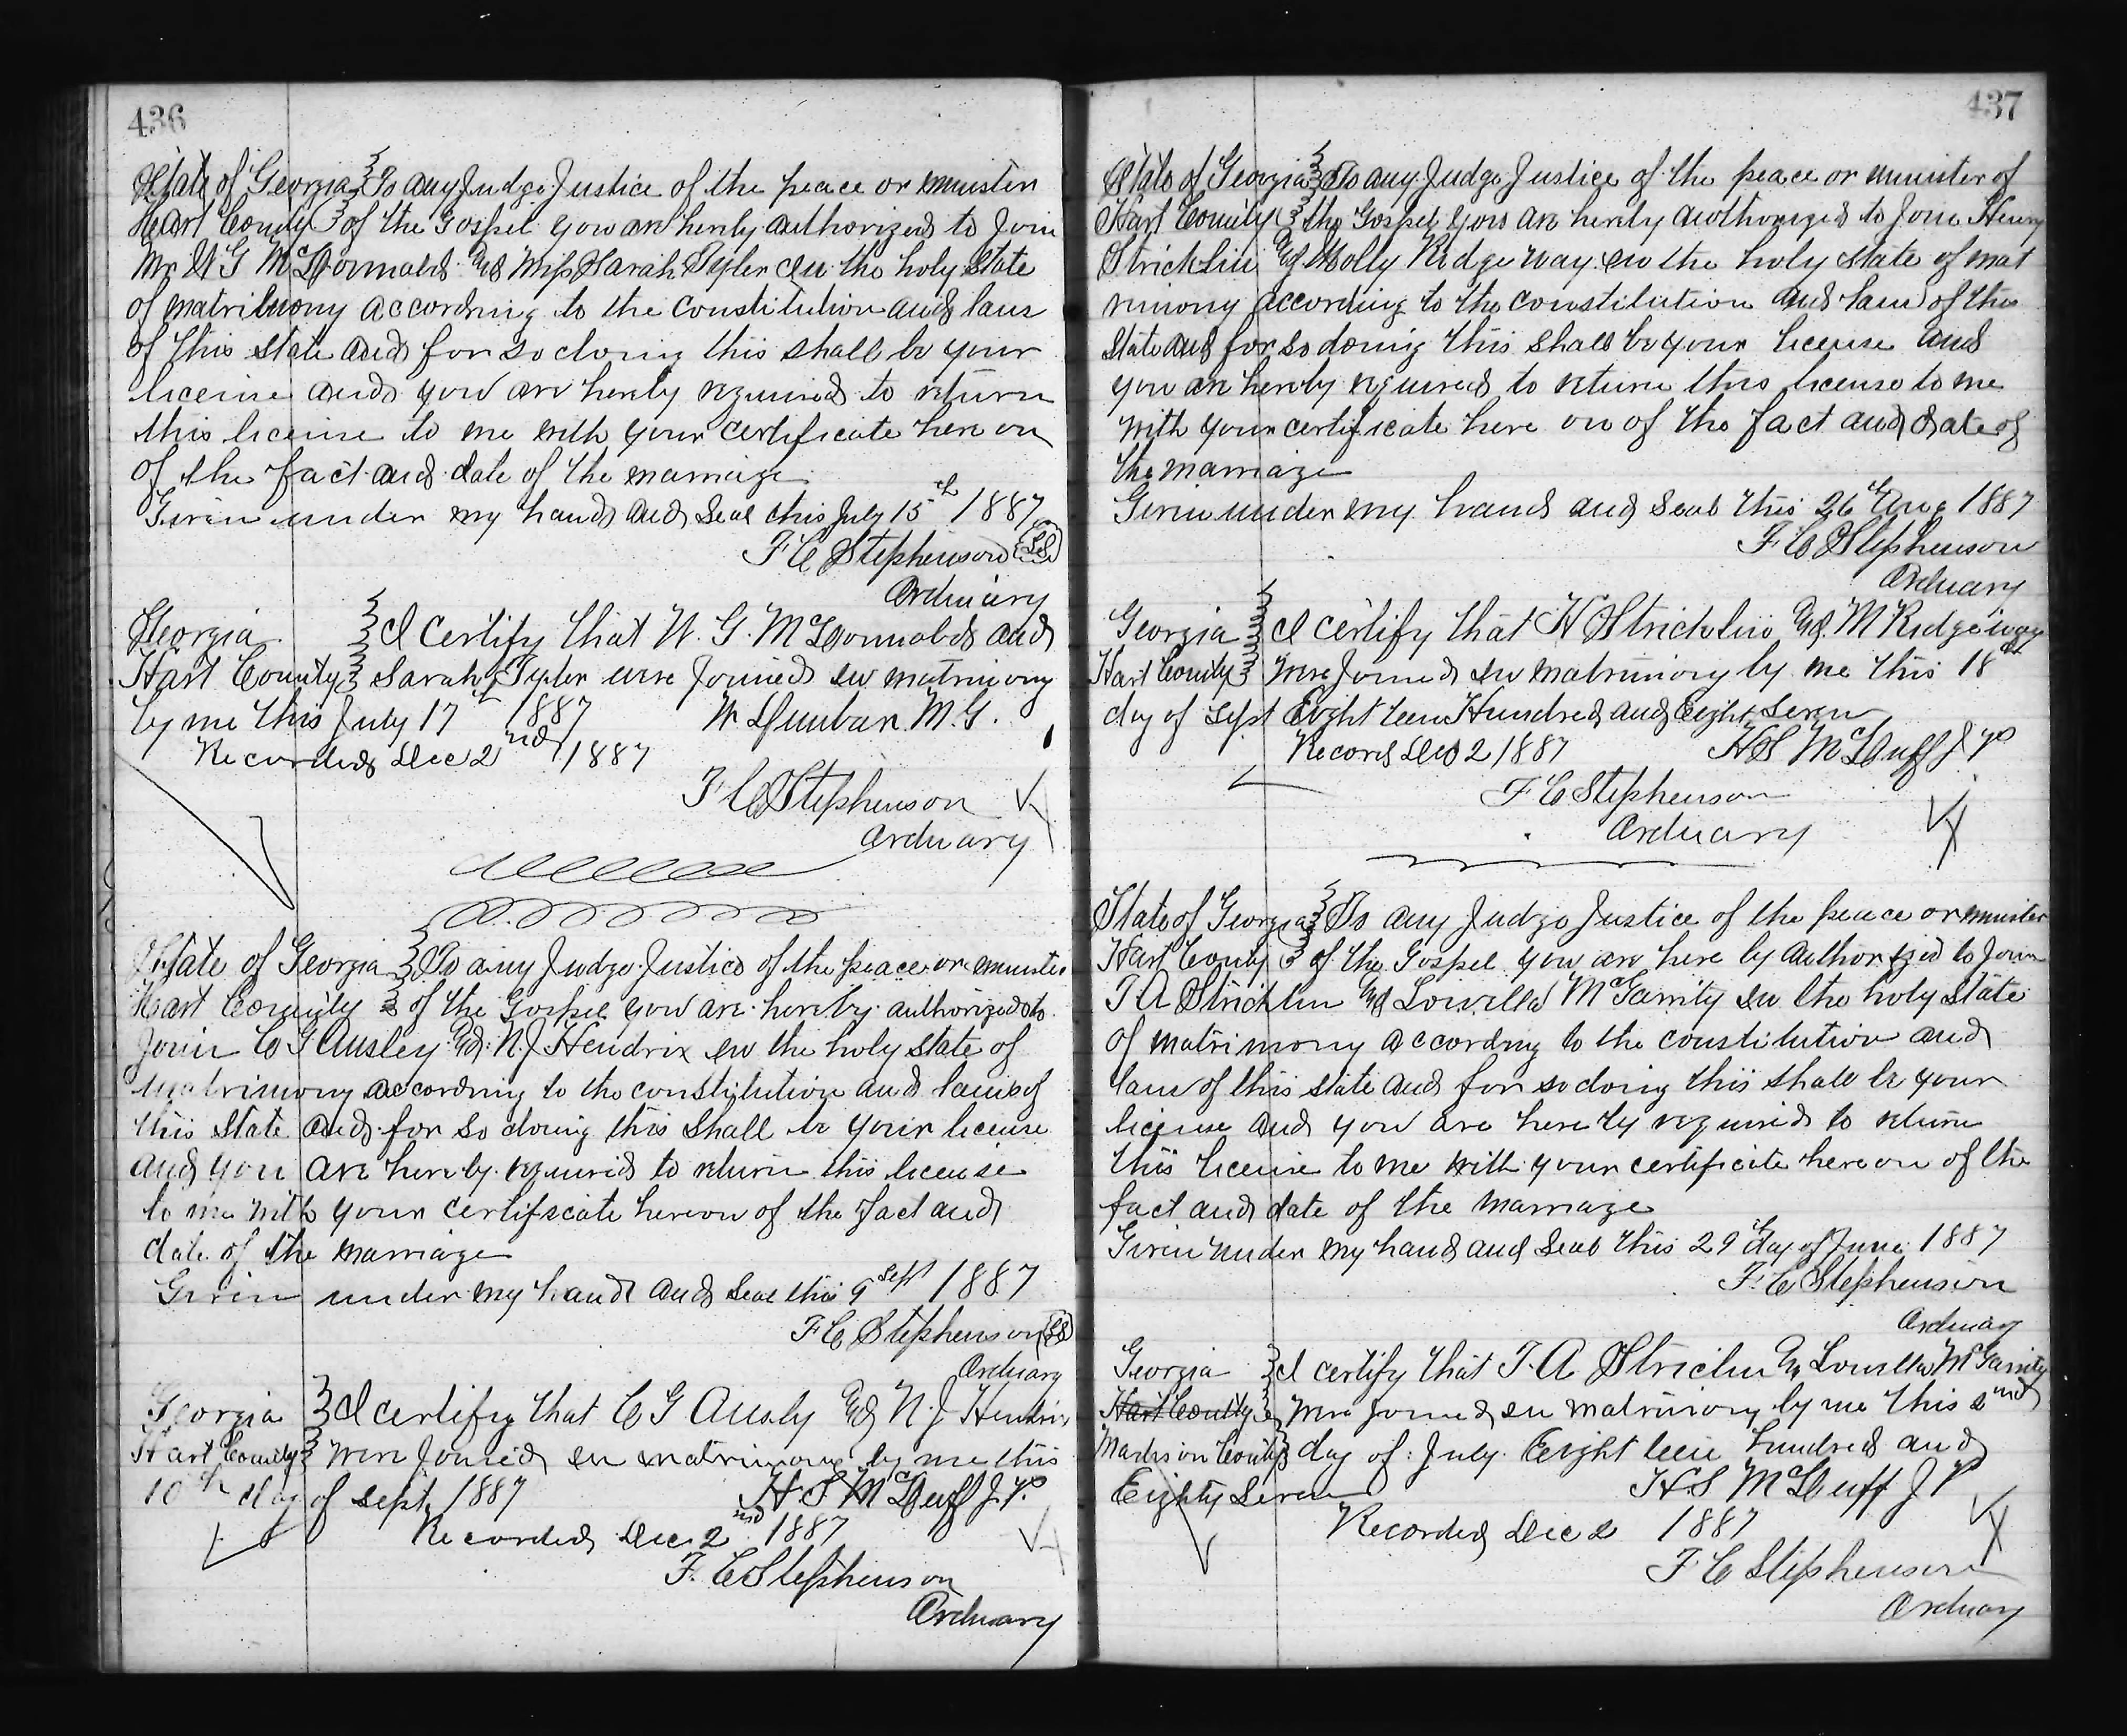 436
State of Georgia } To any Judge Justice of the peace or minister
Hart County } of the Gospel you are hereby authorized to Join
Mr W G McDonnald and Miss Sarah Tyler in the holy State
of matrimony according to the constitution and laws
of this state and for so doing this shall be your
license and you are hereby required to return
this license to me with your certificate here on
of the fact and date of the marriage
Given under my hand and Seal this July 15th 1887
F C Stephenson (LS)
Ordinary
Georgia } I certify that W. G. McDonnald and
Hart County } Sarah Tyler were Joined in matrimony
by me this July 17th 1887 W Dunbar M.G.
Recorded Dec 2nd 1887
F C Stephenson
Ordinary
State of Georgia } To any Judge Justice of the peace or minister
Hart County } of the Gospel you are hereby authorized to
Join C G Ausley and N. J Hendrix in the holy state of
matrimony according to the constitution and laws of
this State and for so doing this Shall be your license
and you are hereby required to return this license
to me with your certificate hereon of the fact and
date of the marriage
Given under my hand and Seal this 9 Sept 1887
F C Stephenson (LS)
Ordinary
Georgia } I certify that C G Ausly and N. J Hendrix
Hart County } were Joined in matrimony by me this
10th day of sept 1887 H. S McDuff J.P.
Recorded Dec 2nd 1887
F. C Stephenson
Ordinary
437
State of Georgia } To any Judge Justice of the peace or minister of
Hart County } the Gospel you are hereby authorized to Join Henry
Stricklin and Molly Ridgeway in the holy state of mat
rimony according to the constitution and laws of this
State and for so doing this shall be your license and
you are hereby required to return this license to me
with your certificate here on of the fact and date of
the marriage
Given under my hand and Seal this 26th Aug 1887
F C Stephenson
Ordinary
Georgia } I certify that H Stricklin and M Ridgeway
Hart County } were Joined in matrimony by me this 18th
day of Sept Eight teen Hundred and Eighty Seven
Record Dec 2 1887 H S McDuff J P
F C Stephenson
Ordinary
State of Georgia } To any Judge Justice of the peace or minister
Hart County } of the Gospel you are here by authorized to Join
T A Stricklin and Louella McGarrity in the holy State
of matrimony according to the constitution and
laws of this state and for so doing this shall be your
license and you are here by required to return
this license to me with your certificate hereon of the
fact and date of the marriage
Given under my hand and Seal this 29th day of June 1887
F. C Stephenson
Ordinary
Georgia } I certify that T. A Striclin and Louella McGarrity
Hart County } were Joined in matrimony by me this 2nd
Madison County } day of July Eight teen hundred and
Eighty Seven H S McDuff J P
Recorded Dec 2 1887
F C Stephenson
Ordinary